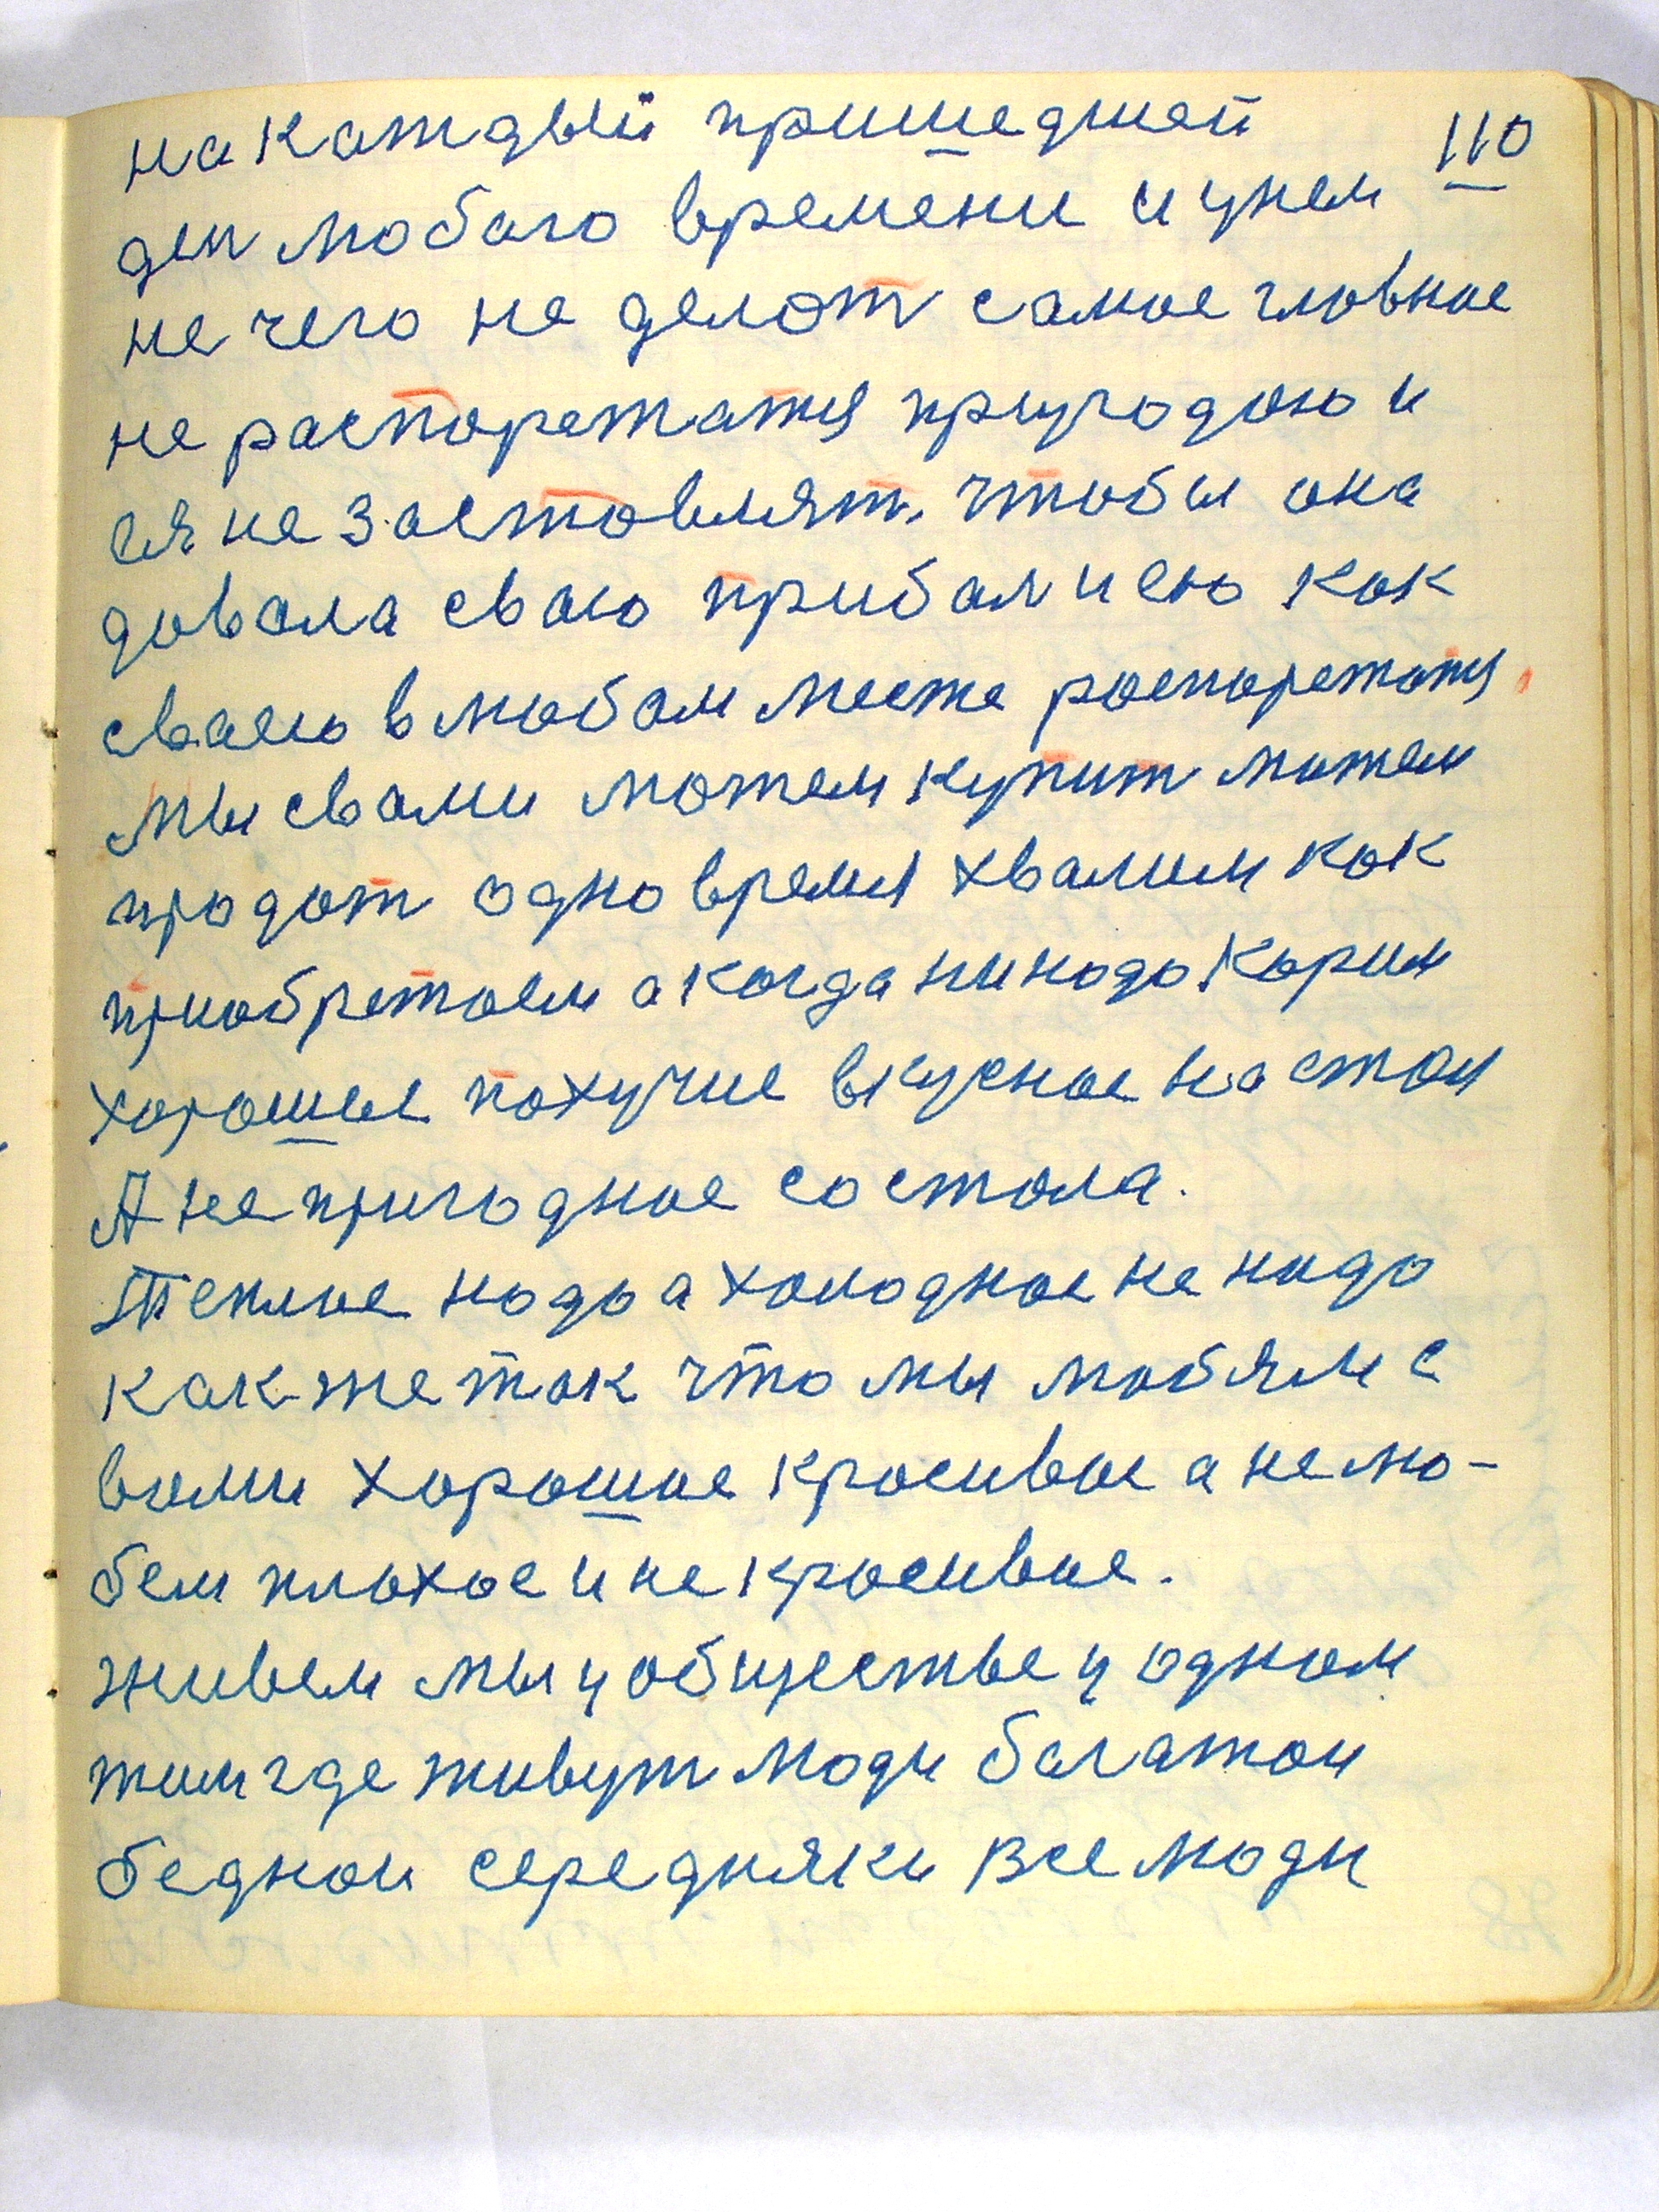 110
на катдый пришедшей
ден любого времени и унем
не чего не делот самое гловное
не распоретатця приуродою и
ея не застовлят, чтобы она
довала сваю прибал и ею как
сваею в любом месте роспоретотця,
мы свами мотем купит мотем
продот одно время хвалим как
приобретоем а когда ни нодо корим
хорошые похучие вкусное на стол
А не пригодное со стола.
Теплое нодо а холодное не нодо
как же ток что мы любям с
воми хорошое кросивое а не лю-
бем плохое и не кросивое.
живем мы у обществе у одном
тим где тивут люди багатои
беднои середняки все люди